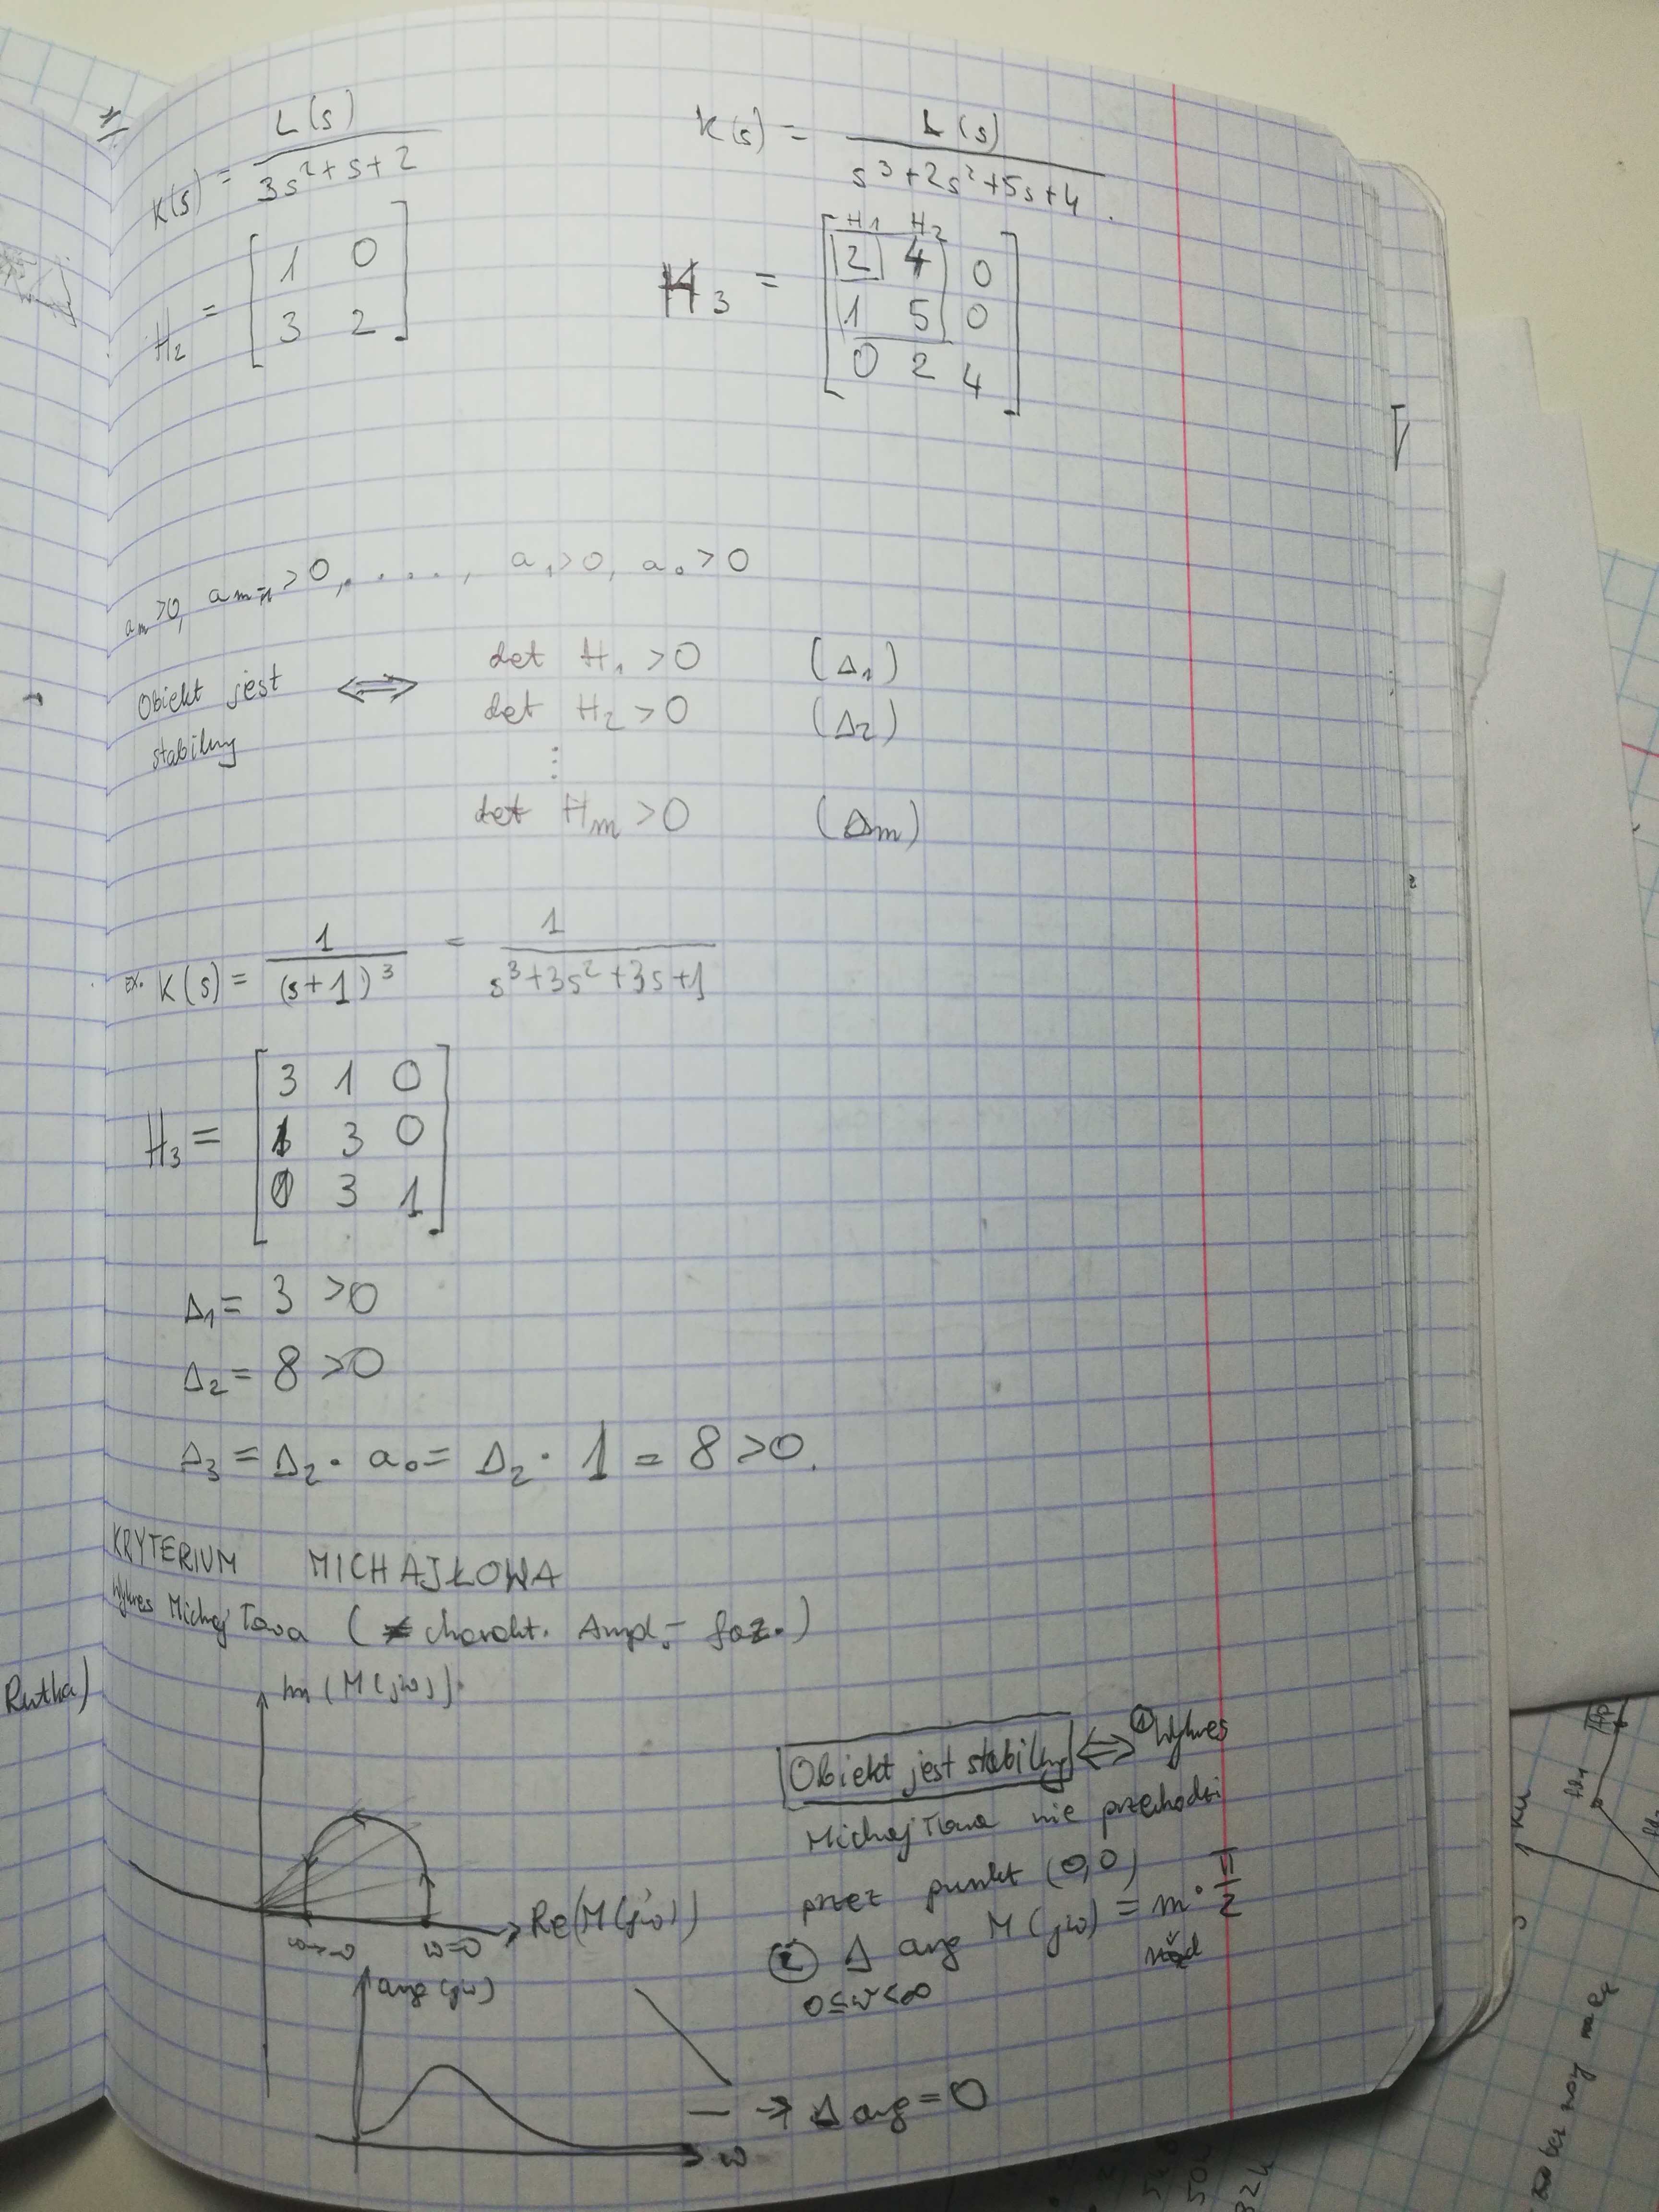 K(s) = L(s) / 3s²+s+2
H₂ = [1 0
3 2]
K(s) = L(s) / s³+2s²+5s+4
H₁ H₂
H₃ = [2 4 0
1 5 0
0 2 4]
aₘ>0, aₘ₋₁>0, . . . . , a₁>0, a₀>0
Obiekt jest stabilny ⟺
det H₁ >0 (Δ₁)
det H₂ >0 (Δ₂)
⋮
det Hₘ >0 (Δₘ)
EX. K(s) = 1 / (s+1)³ = 1 / s³+3s²+3s+1
H₃ = [3 1 0
1 3 0
0 3 1]
Δ₁ = 3 >0
Δ₂ = 8 >0
Δ₃ = Δ₂ · a₀ = Δ₂ · 1 = 8 >0.
KRYTERIUM MICHAJŁOWA
Wykres Michajłowa (≠ charakt. Ampl.- faz.)
Im (M(jω))
Re(M(jω))
ω=0
arg(jω)
ω
→ Δ arg = 0
Obiekt jest stabilny ⟺ ① Wykres
Michajłowa nie przechodzi
przez punkt (0,0)
② Δ arg M(jω) = m · π/2
0≤ω<∞
Rutha)